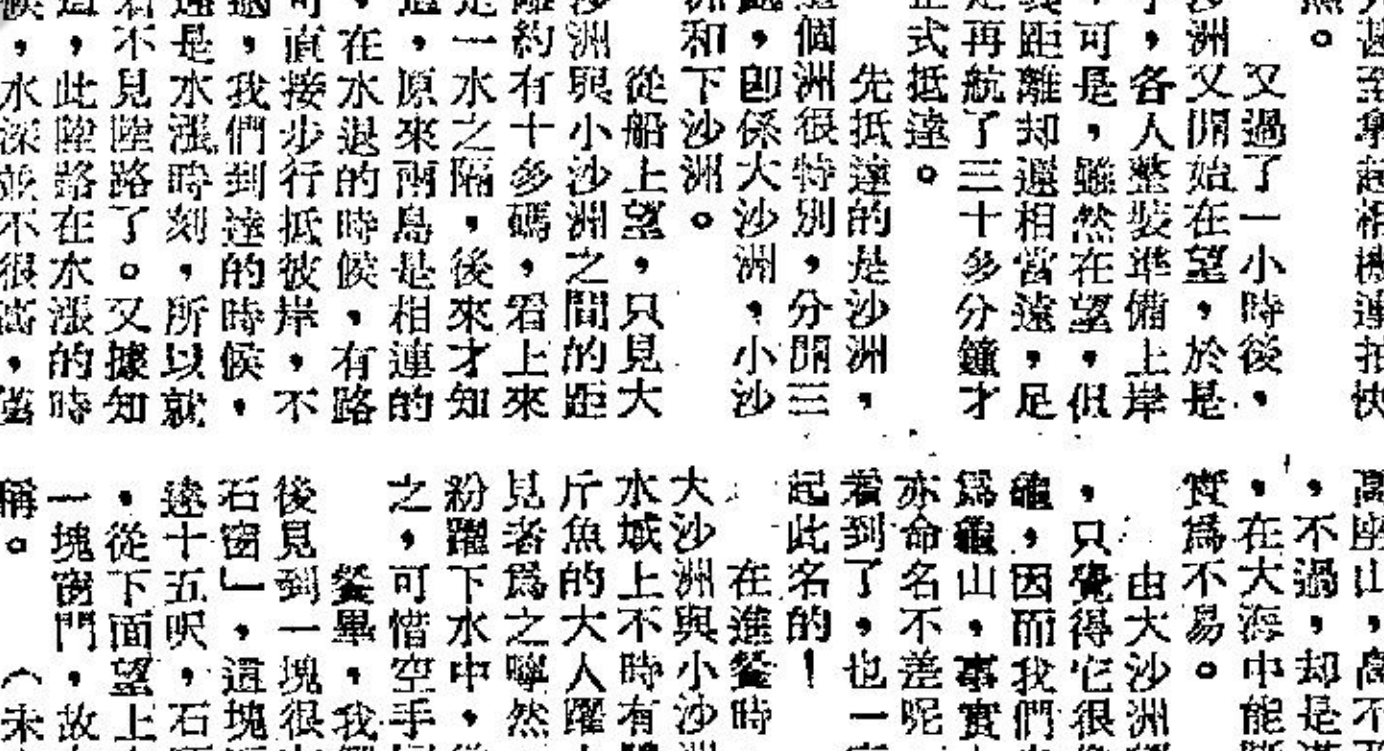 甚至
然。
又過了一小時後，
沙洲又開始在望，於是
，各人整裝準備上岸
，可是，雖然在望，但
距離却還相當遠，足
足再航了三十多分鐘才
正式抵達。
先抵達的是沙洲，
這個洲很特別，分開三
，即係大沙洲，小沙
洲和下沙洲。
從船上望，只見大
沙洲與小沙洲之間的距
離約有十多碼，看上來
是一水之隔，後來才知
，原來兩島是相連的
，在水退的時候，有路
可直接步行抵彼岸，不
過，我們到達的時候，
是水漲時刻，所以就
不見陸路了。又據知
，此陸路在水漲的時
候，水深並不很高，僅
高座山，高不
，不過，却是
，在大海中能
實為不易。
由大沙洲
，只覺得它很
龜，因而我們
為龜山，事實
亦命名不差呢
看到了，也一
起此名的！
在進餐時
大沙洲與小沙
水域上不時有
斤魚的大人躍
見者為之嘩然
紛躍下水中，
之，可惜空手
餐畢，我
後見到一塊很
石窗」，這塊
達十五呎，石
，從下面望上
一塊窗門，故
稱。（未